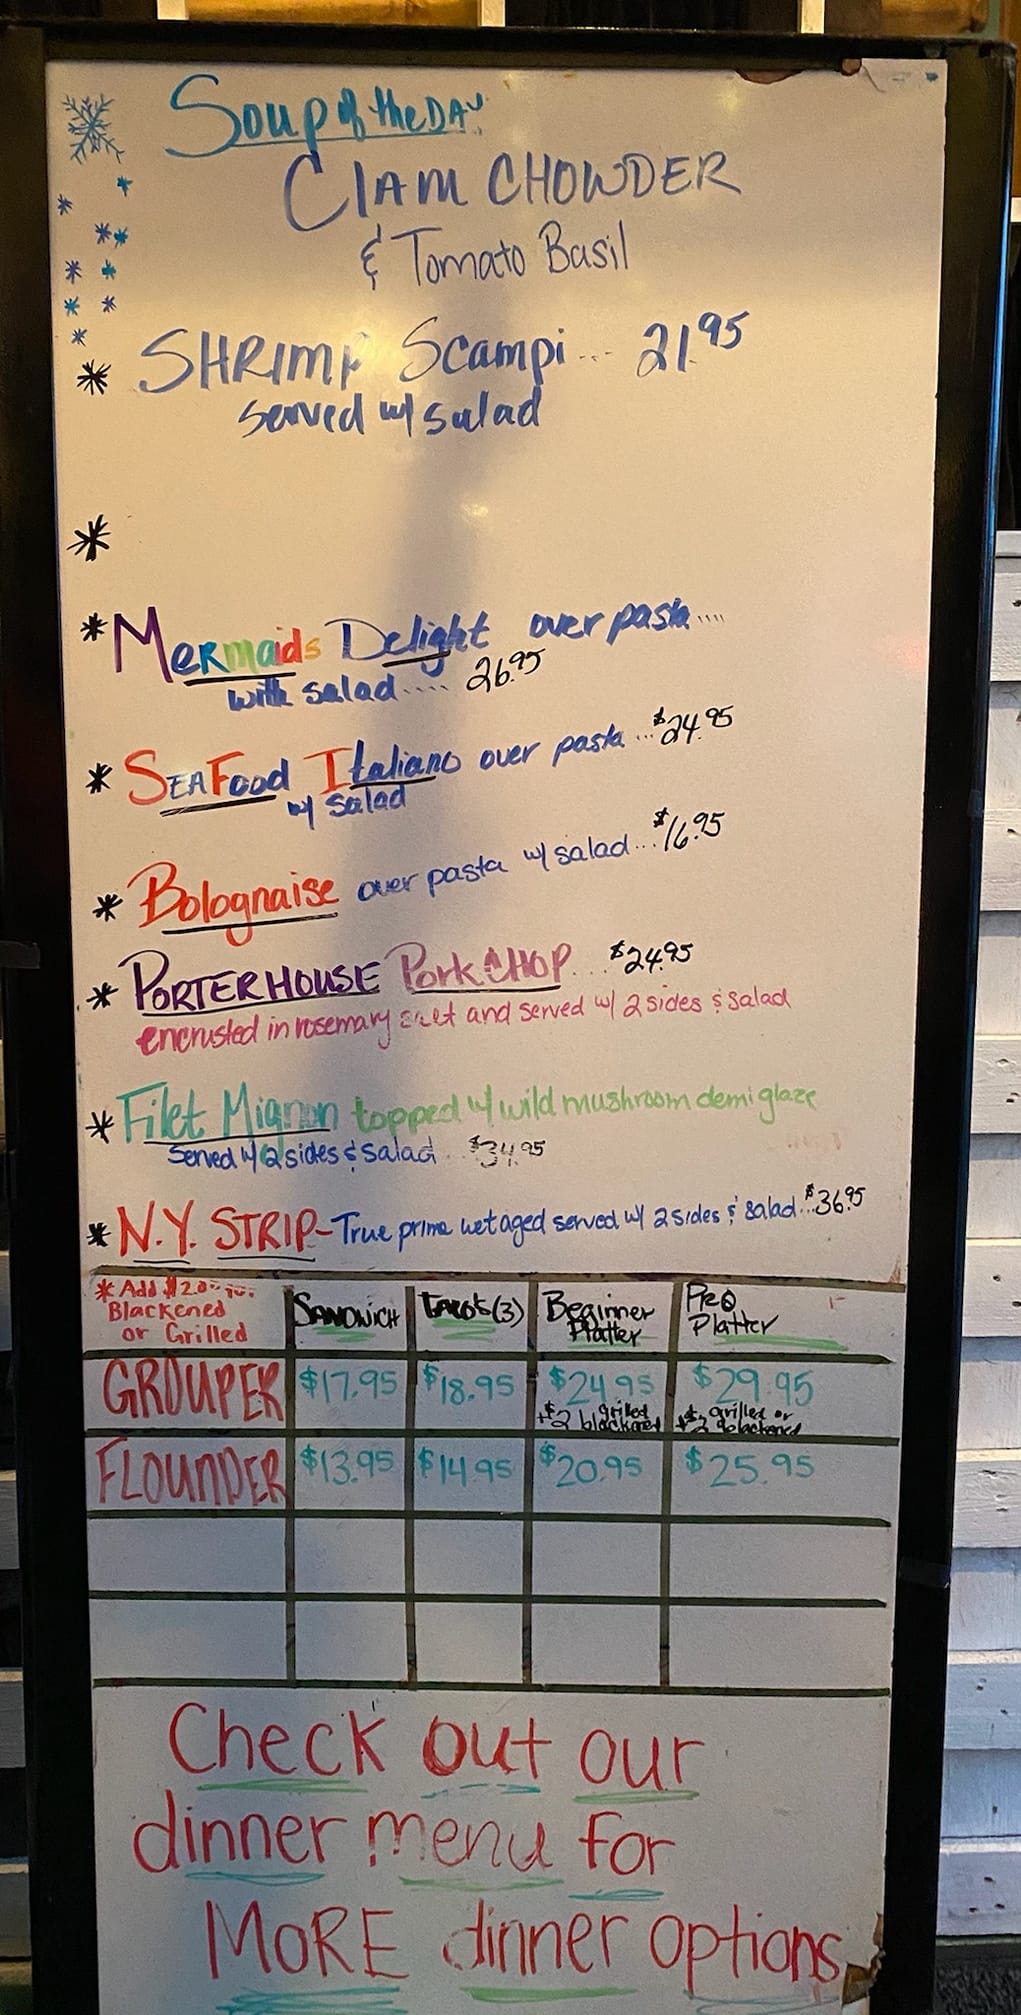 Soup of the DAY
ClAM CHOWDER
& Tomato Basil
* SHRIMP Scampi ... 21.95
served w/ salad
*
* MERmaids Delight over pasta ....
with salad .... 26.95
* SEAFood Italiano over pasta ... $24.95
w/ salad
* Bolognaise over pasta w/ salad ... $16.95
* PORTERHOUSE Pork CHOP ... $24.95
encrusted in rosemary salt and served w/ 2 sides & salad
* Filet Mignon topped w/ wild mushroom demi glaze
Served w/ 2 sides & salad ... $34.95
* N.Y. STRIP - True prime wet aged served w/ 2 sides & salad ... $36.95
* Add $2.00 for
Blackened
or Grilled
SANDWICH TACO'S (3) Beginner Platter PRO Platter
GROUPER $17.95 $18.95 $24.95 $29.95
+$2 grilled blackened +$2 grilled or blackened
FLOUNDER $13.95 $14.95 $20.95 $25.95
Check out our
dinner menu for
MoRE dinner options